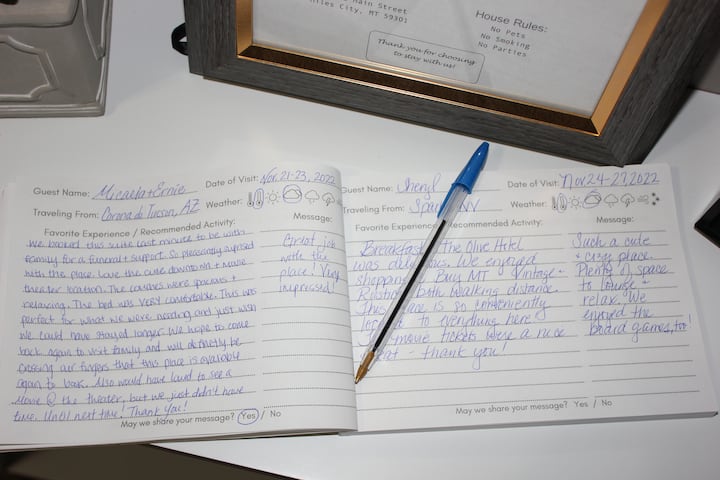 Main Street
Miles City, MT 59301
House Rules:
No Pets
No Smoking
No Parties
Thank you for choosing
to stay with us!
Guest Name: Micaela + Ernie
Date of Visit: Nov. 21-23, 2022
Traveling From: Corona de Tucson, AZ
Weather:
Favorite Experience / Recommended Activity:
Message:
We booked this suite last minute to be with
family for a funeral + support. So pleasantly suprised
with the place. Love the cute downtown + movie
theater location. The couches were spacious +
relaxing. The bed was VERY comfortable. This was
perfect for what we were needing and just wish
we could have stayed longer. We hope to come
back again to visit family and will definitely be
crossing our fingers that this place is available
again to book. Also would have loved to see a
movie @ the theater, but we just didn't have
time. Until next time! Thank you!
Great job
with the
place! Very
impressed!
May we share your message? Yes / No
Guest Name: Sheryl
Date of Visit: Nov 24-27, 2022
Traveling From: NV
Weather:
Favorite Experience / Recommended Activity:
Message:
Breakfast The Olive Hotel
was delicious. We enjoyed
shopping Buy MT Vintage +
Rustic, both walking distance.
This place is so conveniently
to everything here
movie tickets were a nice
treat - thank you!
Such a cute
+ cozy place.
Plenty of space
to lounge +
relax. We
enjoyed the
board games, too!
May we share your message? Yes / No